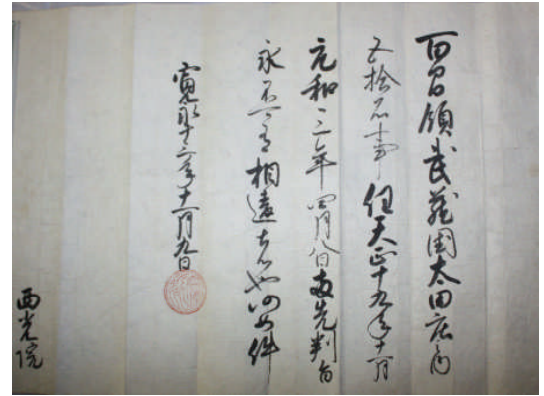 百間領武蔵国太田庄内
五拾石事任天正十九年十一月
元和三年四月八日両先判旨
永不可有相違者也仍如件
寛永十三年十一月九日
西光院